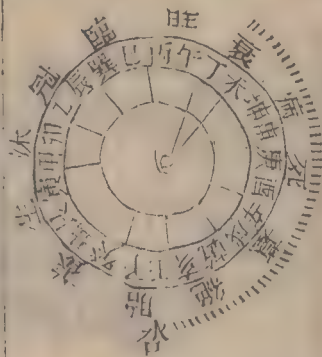 旺衰病死墓絕胎養生沐冠臨
丙午丁未坤申庚酉辛戌乾亥壬子癸丑艮寅甲卯乙辰巽巳